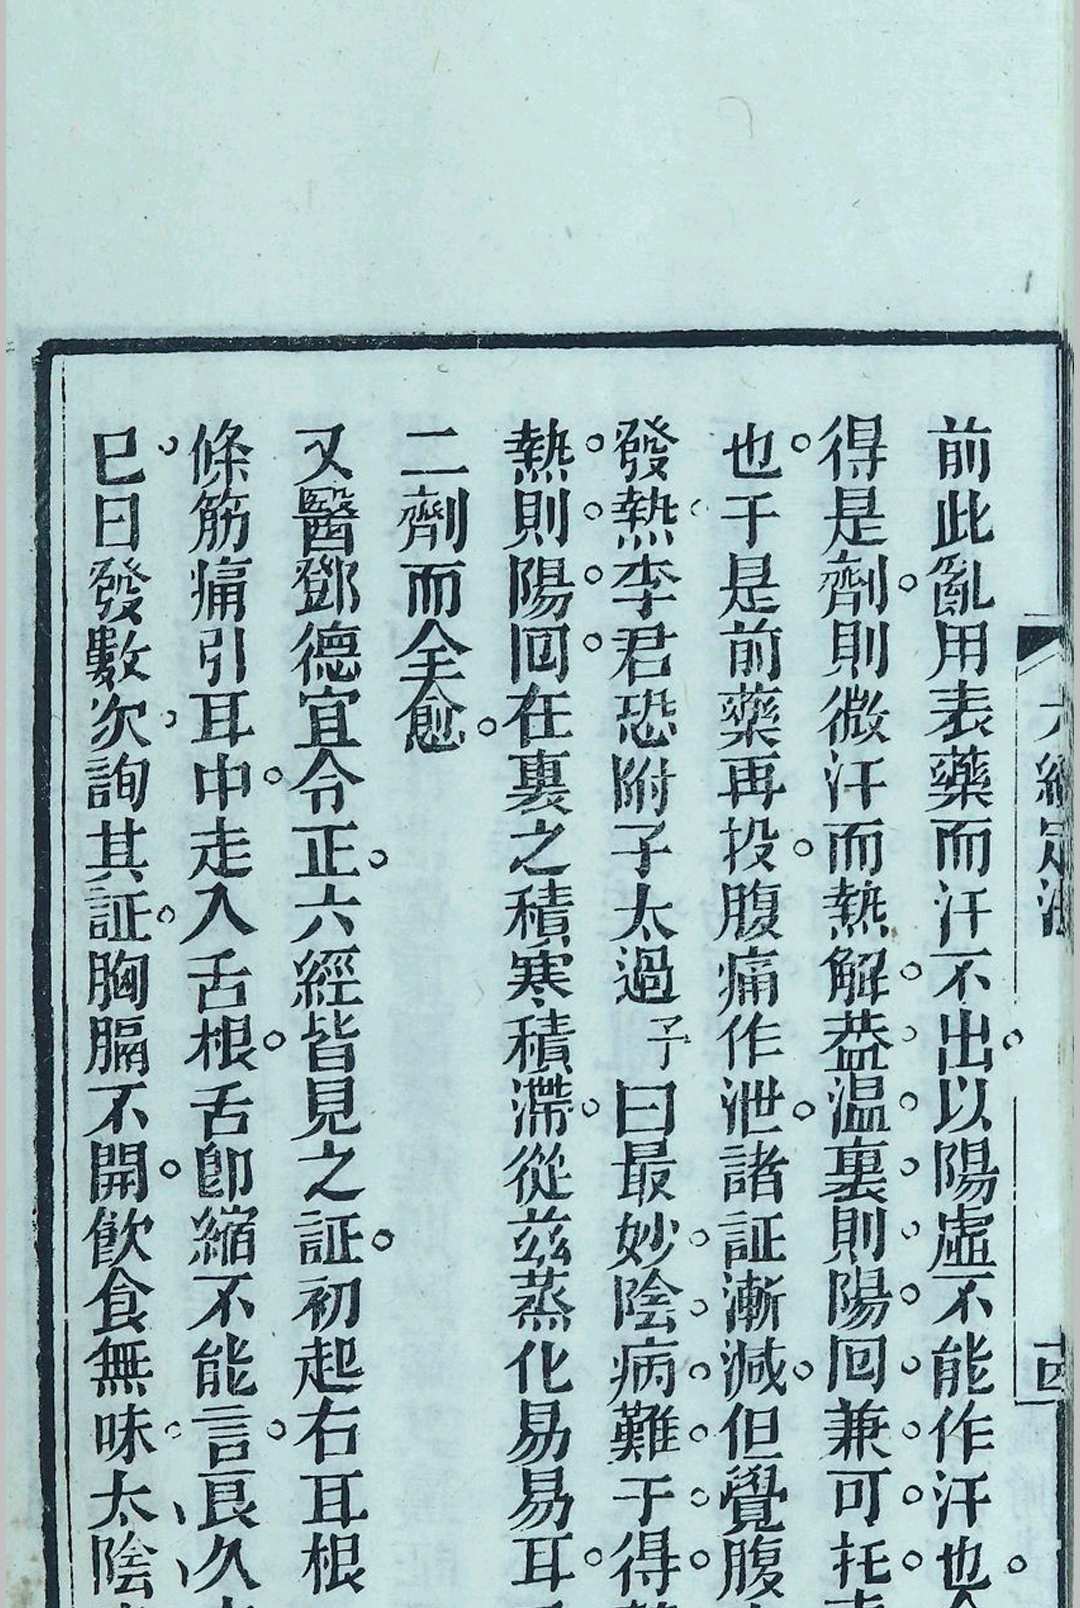 前此亂用表藥而汗不出以陽虛不能作汗也
得是劑則微汗而熱解葢温裏則陽回兼可托
也于是前藥再投腹痛作泄諸証漸減但覺腹
發熱李君恐附子太過予曰最妙陰病難于得
熱則陽回在裏之積寒積滯從兹蒸化易易耳
二劑而全愈
又醫鄧德宜令正六經皆見之証初起右耳根
條筋痛引耳中走入舌根舌卽縮不能言良久
巳日發數次詢其証胸膈不開飲食無味太陰